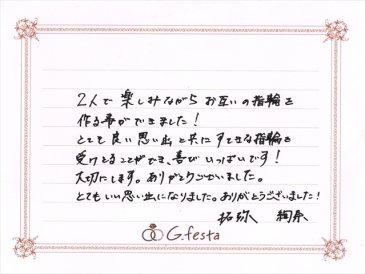 2人で楽しみながらお互いの指輪を
作る事ができました！
とても良い思い出と共にすてきな指輪を
受けとることができ、喜びいっぱいです！
大切にします。ありがとうございました。
とてもいい思い出になりました。ありがとうございました！
拓弥
G.festa